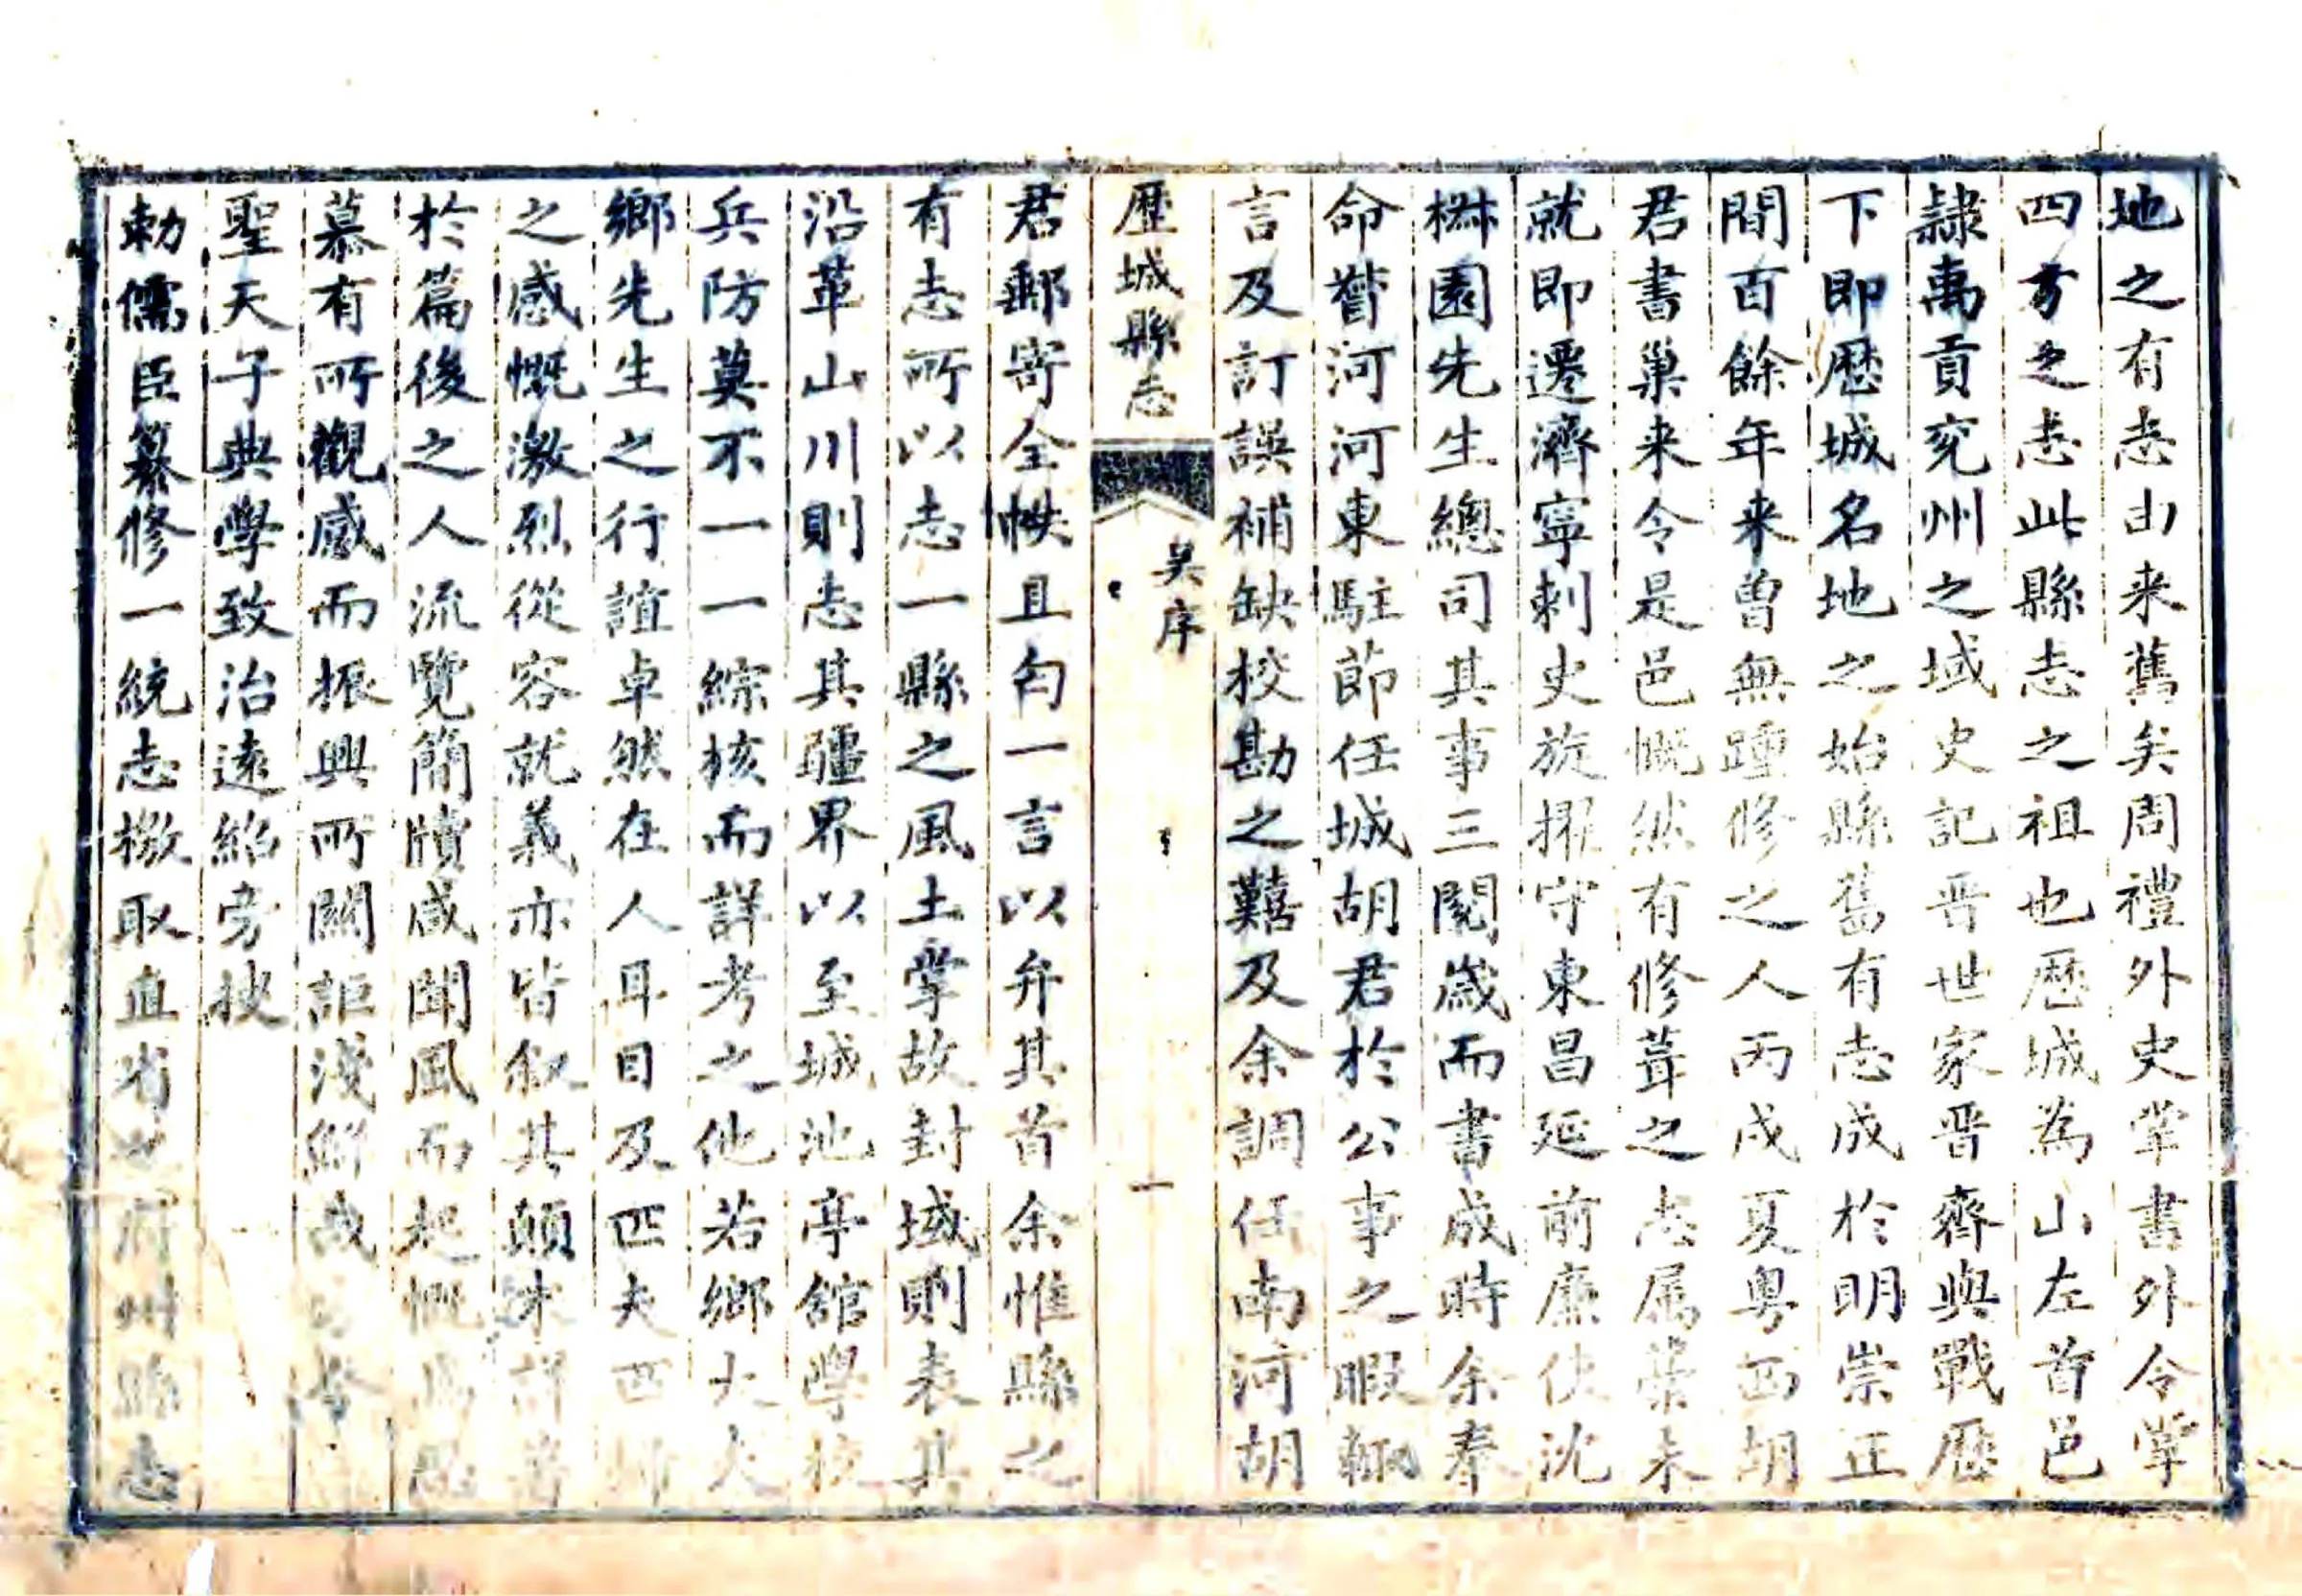 地之有志由来舊矣周禮外史掌書外令掌
四方之志此縣志之祖也歷城為山左首邑
隷禹貢兖州之域史記晋世家晋齊與戰歷
下即歷城名地之始縣舊有志成於明崇正
間百餘年来曽無踵修之人丙戌夏粤西胡
君書巢来令是邑慨然有修葺之志属藁未
就即遷濟寧刺史旋擢守東昌延前廉使沈
椒園先生總司其事三閱歲而書成時余奉
命督河河東駐節任城胡君於公事之暇輒
言及訂誤補缺校勘之囏及余調任南河胡
歷城縣志
吴序
一
君郵寄全帙且匄一言以弁其首余惟縣之
有志所以志一縣之風土掌故封域則表其
沿革山川則志其疆界以至城池亭舘學校
兵防莫不一一綜核而詳考之他若鄉大夫
鄉先生之行誼卓然在人耳目及匹夫匹婦
之感慨激烈從容就義亦皆叙其顛末詳著
於篇後之人流覽簡牘咸聞風而起慨焉思
慕有所觀感而振興所關詎淺鮮哉
聖天子典學致治遠紹旁搜
勅儒臣纂修一統志檄取直省府州縣志